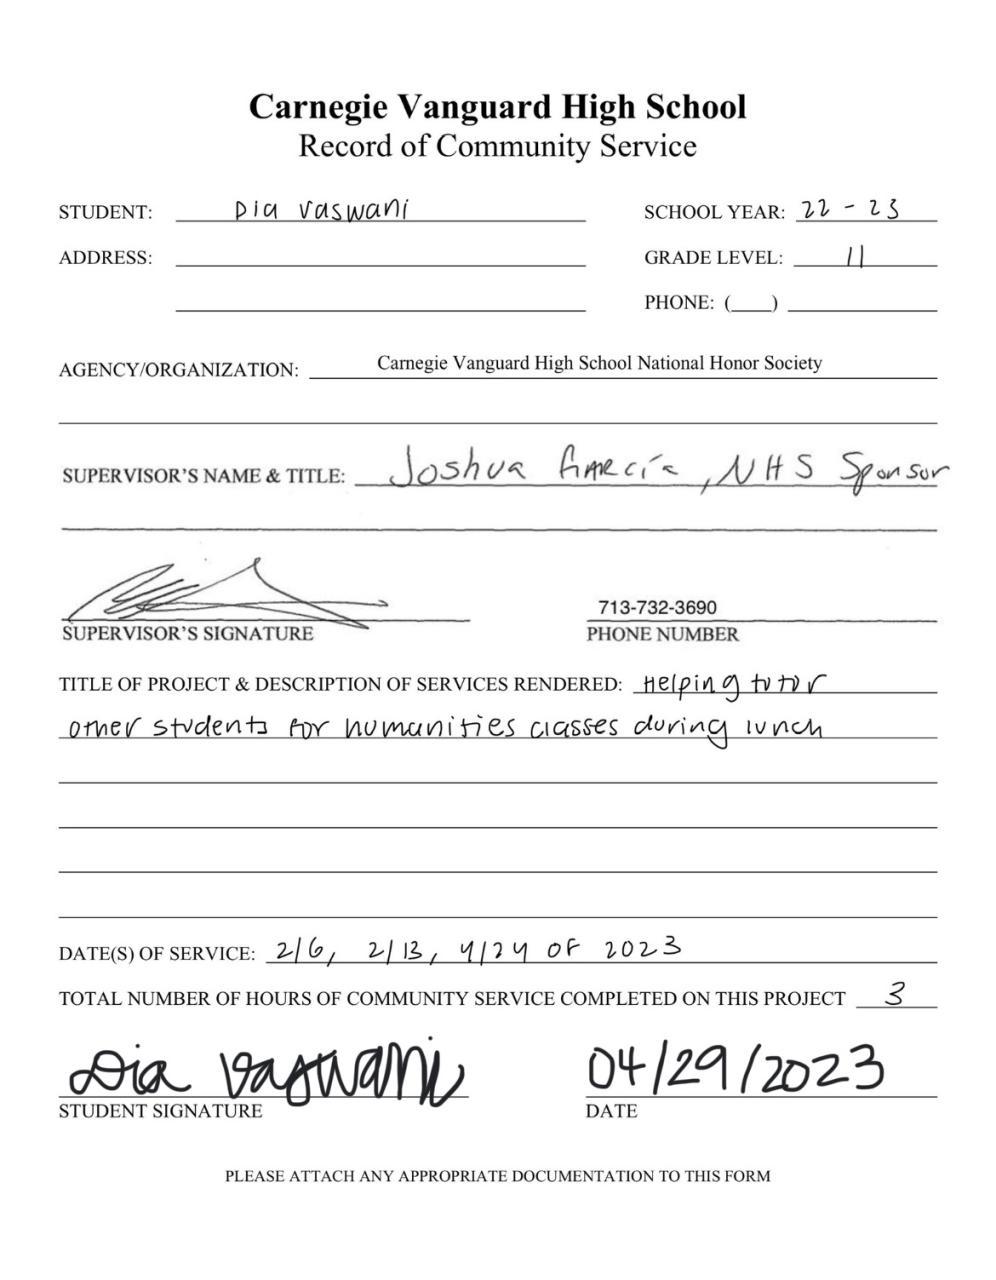 Carnegie Vanguard High School
Record of Community Service
STUDENT: Dia Vaswani SCHOOL YEAR: 22 - 23
ADDRESS: GRADE LEVEL: 11
PHONE: (___)
AGENCY/ORGANIZATION: Carnegie Vanguard High School National Honor Society
SUPERVISOR'S NAME & TITLE: Joshua Garcia, NHS Sponsor
713-732-3690
SUPERVISOR'S SIGNATURE PHONE NUMBER
TITLE OF PROJECT & DESCRIPTION OF SERVICES RENDERED: Helping tutor
other students for humanities classes during lunch
DATE(S) OF SERVICE: 2/6, 2/13, 4/24 OF 2023
TOTAL NUMBER OF HOURS OF COMMUNITY SERVICE COMPLETED ON THIS PROJECT 3
Dia Vaswani 04/29/2023
STUDENT SIGNATURE DATE
PLEASE ATTACH ANY APPROPRIATE DOCUMENTATION TO THIS FORM